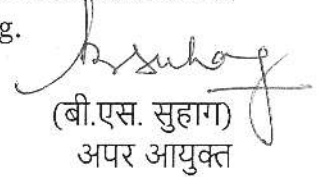 g.
(बी.एस. सुहाग)
अपर आयुक्त